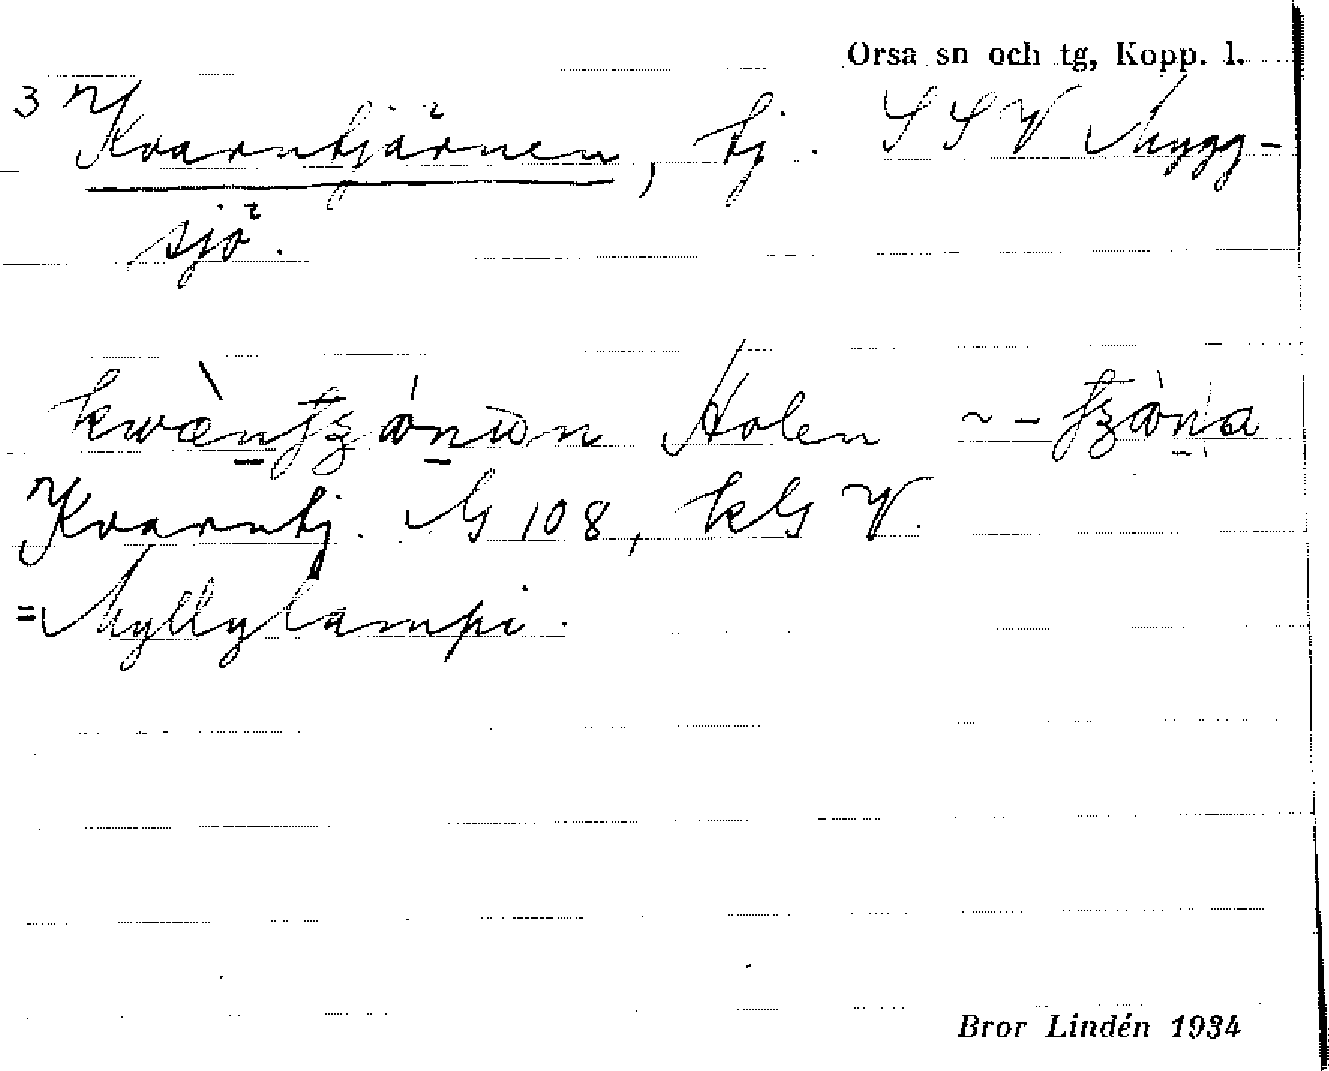 Orsa sn och tg, Kopp. l.
3 Kvarntjärnen, tj. SSV Mygg-
sjö.
Holen
Kvarntj. G 108, kG V.
=Myllylampi.
Bror Lindén 1934